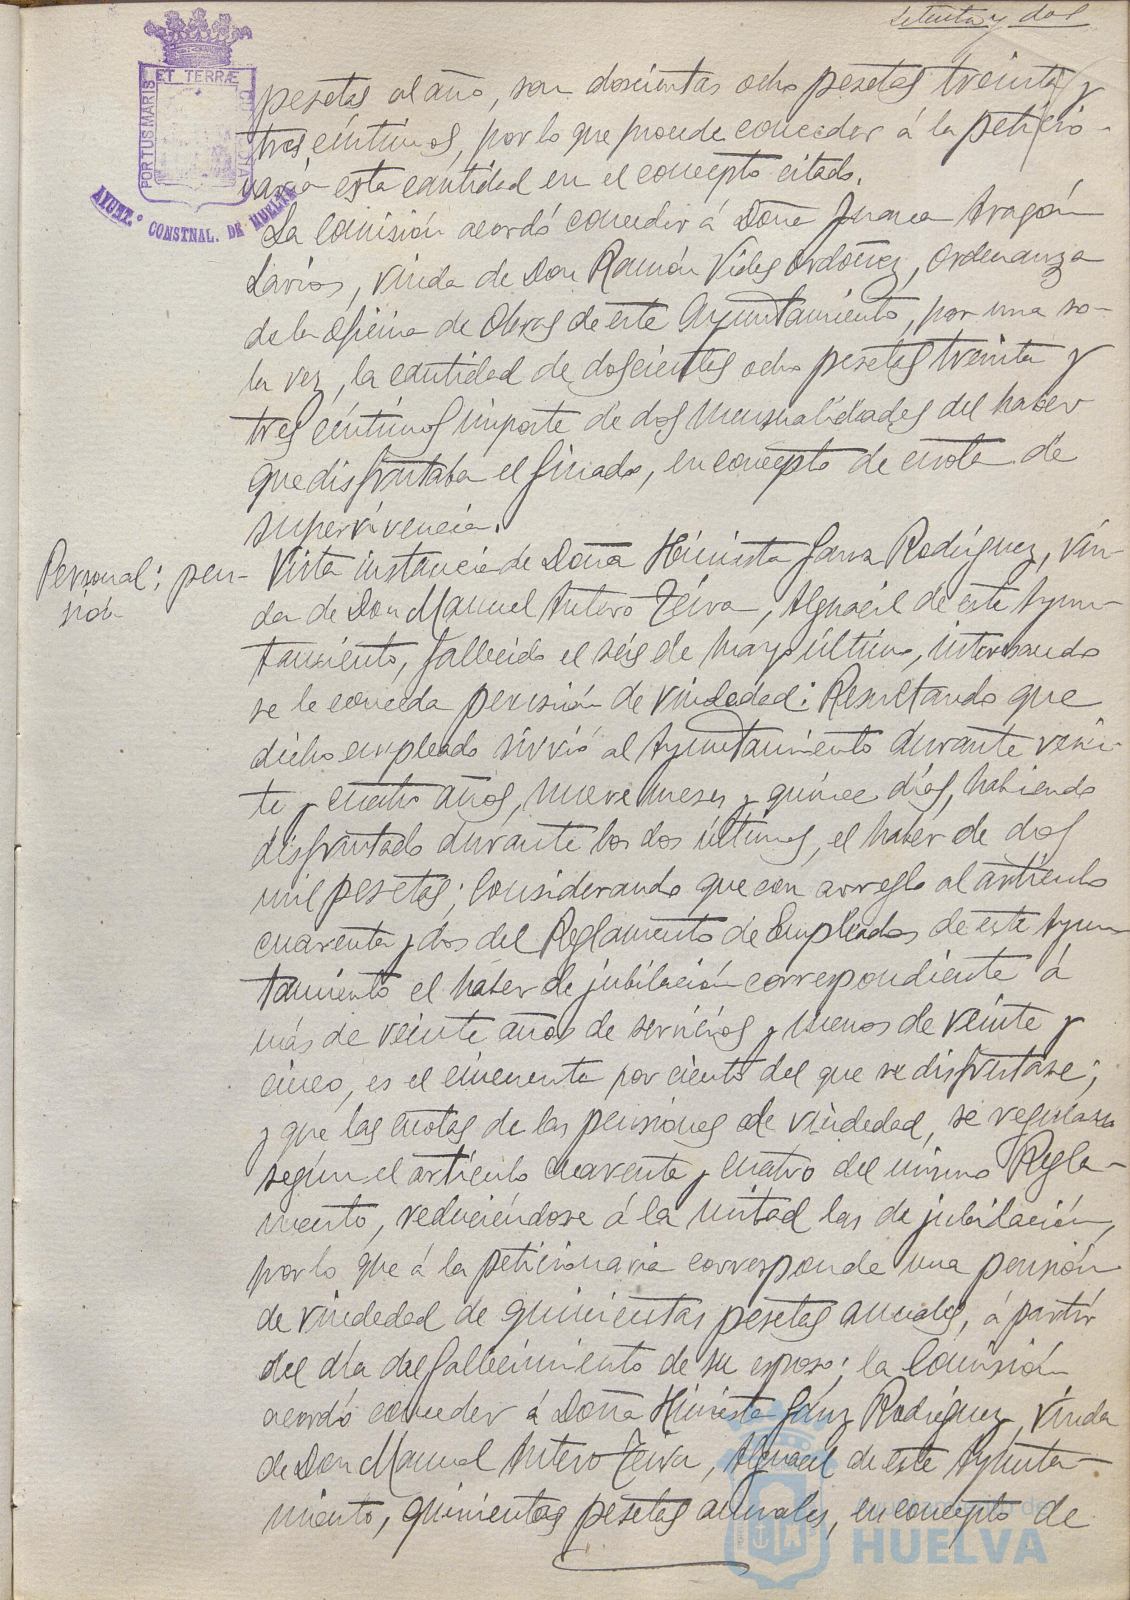 setenta y dos
PORTUS MARIS ET TERRÆ CUSTODIA
AYUNT.º CONSTNAL. DE HUELVA
pesetas al año, son doscientas ocho pesetas treinta y
tres céntimos, por lo que procede conceder á la peticio-
naria esta cantidad en el concepto citado.
La Comisión acordó conceder á Doña Juana Aragón
Larios, viuda de Don Ramón Vides Ordóñez, Ordenanza
de la oficina de Obras de este Ayuntamiento, por una so-
la vez, la cantidad de doscientas ocho pesetas treinta y
tres céntimos importe de dos mensualidades del haber
que disfrutaba el finado, en concepto de cuota de
supervivencia.
Personal: pen-
sión
Vista instancia de Doña Hiniesta Sanz Rodríguez, viu-
da de Don Manuel Antero Zeiva, Alguacil de este Ayun-
tamiento, fallecido el seis de marzo último, interesando
se le conceda pensión de viudedad: Resultando que
dicho empleado sirvió al Ayuntamiento durante vein-
te y cuatro años, nueve meses y quince días, habiendo
disfrutado durante los dos últimos, el haber de dos
mil pesetas; Considerando que con arreglo al artículo
cuarenta y dos del Reglamento de Empleados de este Ayun-
tamiento el haber de jubilación correspondiente á
más de veinte años de servicios y menos de veinte y
cinco, es el cincuenta por ciento del que se disfrutase;
y que las cuotas de las pensiones de viudedad, se regularán
según el artículo cuarenta y cuatro del mismo Regla-
mento, reduciéndose á la mitad las de jubilación,
por lo que á la peticionaria corresponde una pensión
de viudedad de quinientas pesetas anuales, á partir
del día del fallecimiento de su esposo; la Comisión
acordó conceder á Doña Hiniesta Sanz Rodríguez, viuda
de Don Manuel Antero Zeiva, Alguacil de este Ayunta-
miento, quinientas pesetas anuales, en concepto de
Ayuntamiento de
HUELVA